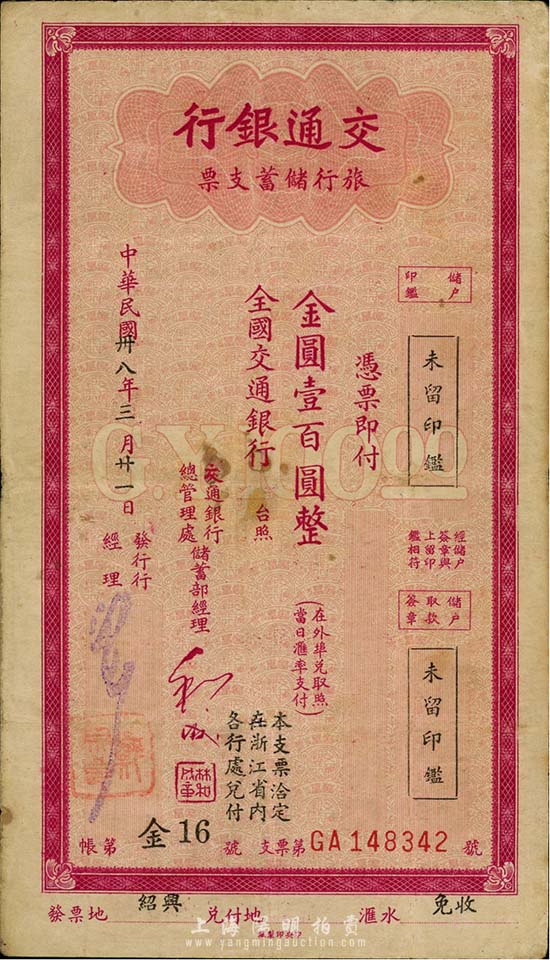 交通銀行
旅行儲蓄支票
儲戶印鑑
未留印鑑
經儲戶簽章與上留印鑑相符
儲戶取款簽章
未留印鑑
憑票即付
金圓壹百圓整
(在外埠兌取照當日滙率支付)
全國交通銀行 台照
本支票洽定
在浙江省內
各行處兌付
交通銀行總管理處儲蓄部經理
林和成章
發行行經理
中華民國卅八年三月廿一日
帳第 金16 號 支票第 GA148342 號
發票地 紹興 兌付地 滙水 免收
G.X.1COO
上海陽明拍賣
www.yangmingauction.com